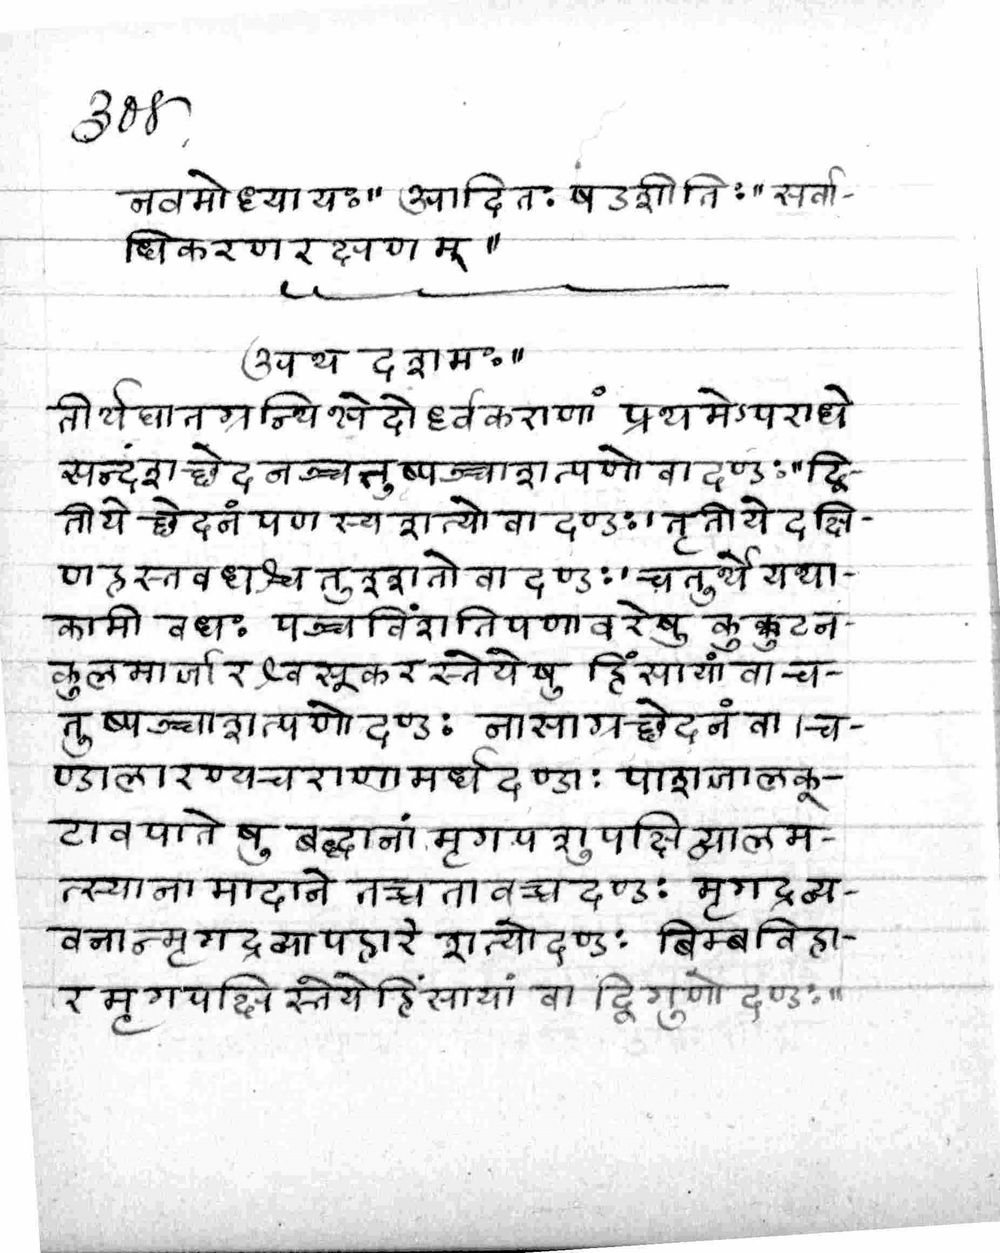 ३०४
नवमोध्यायः॥ आदितः षडशीतिः॥ सर्वा-
धिकरणरक्षणम्॥
अथ दशमः॥
तीर्थघातग्रन्थिभेदोर्ध्वकराणां प्रथमेऽपराधे
सन्दंशछेदनञ्चतुष्पञ्चाशत्पणो वा दण्डः॥ द्वि-
तीये छेदनं पणस्य शत्यो वा दण्डः। तृतीये दक्षि-
णहस्तवधश्चतुश्शतो वा दण्डः। चतुर्थे यथा-
कामी वधः पञ्चविंशतिपणावरेषु कुक्कुटन-
कुलमार्जारश्वसूकरस्तेयेषु हिंसायां वा च-
तुष्पञ्चाशत्पणो दण्डः नासाग्रछेदनं वा। च-
ण्डालारण्यचराणामर्धदण्डाः पाशजालकू-
टावपातेषु बद्धानां मृगपशुपक्षिव्यालम-
त्स्यानामादाने तच्च तावच्च दण्डः मृगद्रव्य-
वनान्मृगद्रव्यापहारे शत्यो दण्डः बिम्बविहा-
रमृगपक्षिस्तेये हिंसायां वा द्विगुणो दण्डः॥